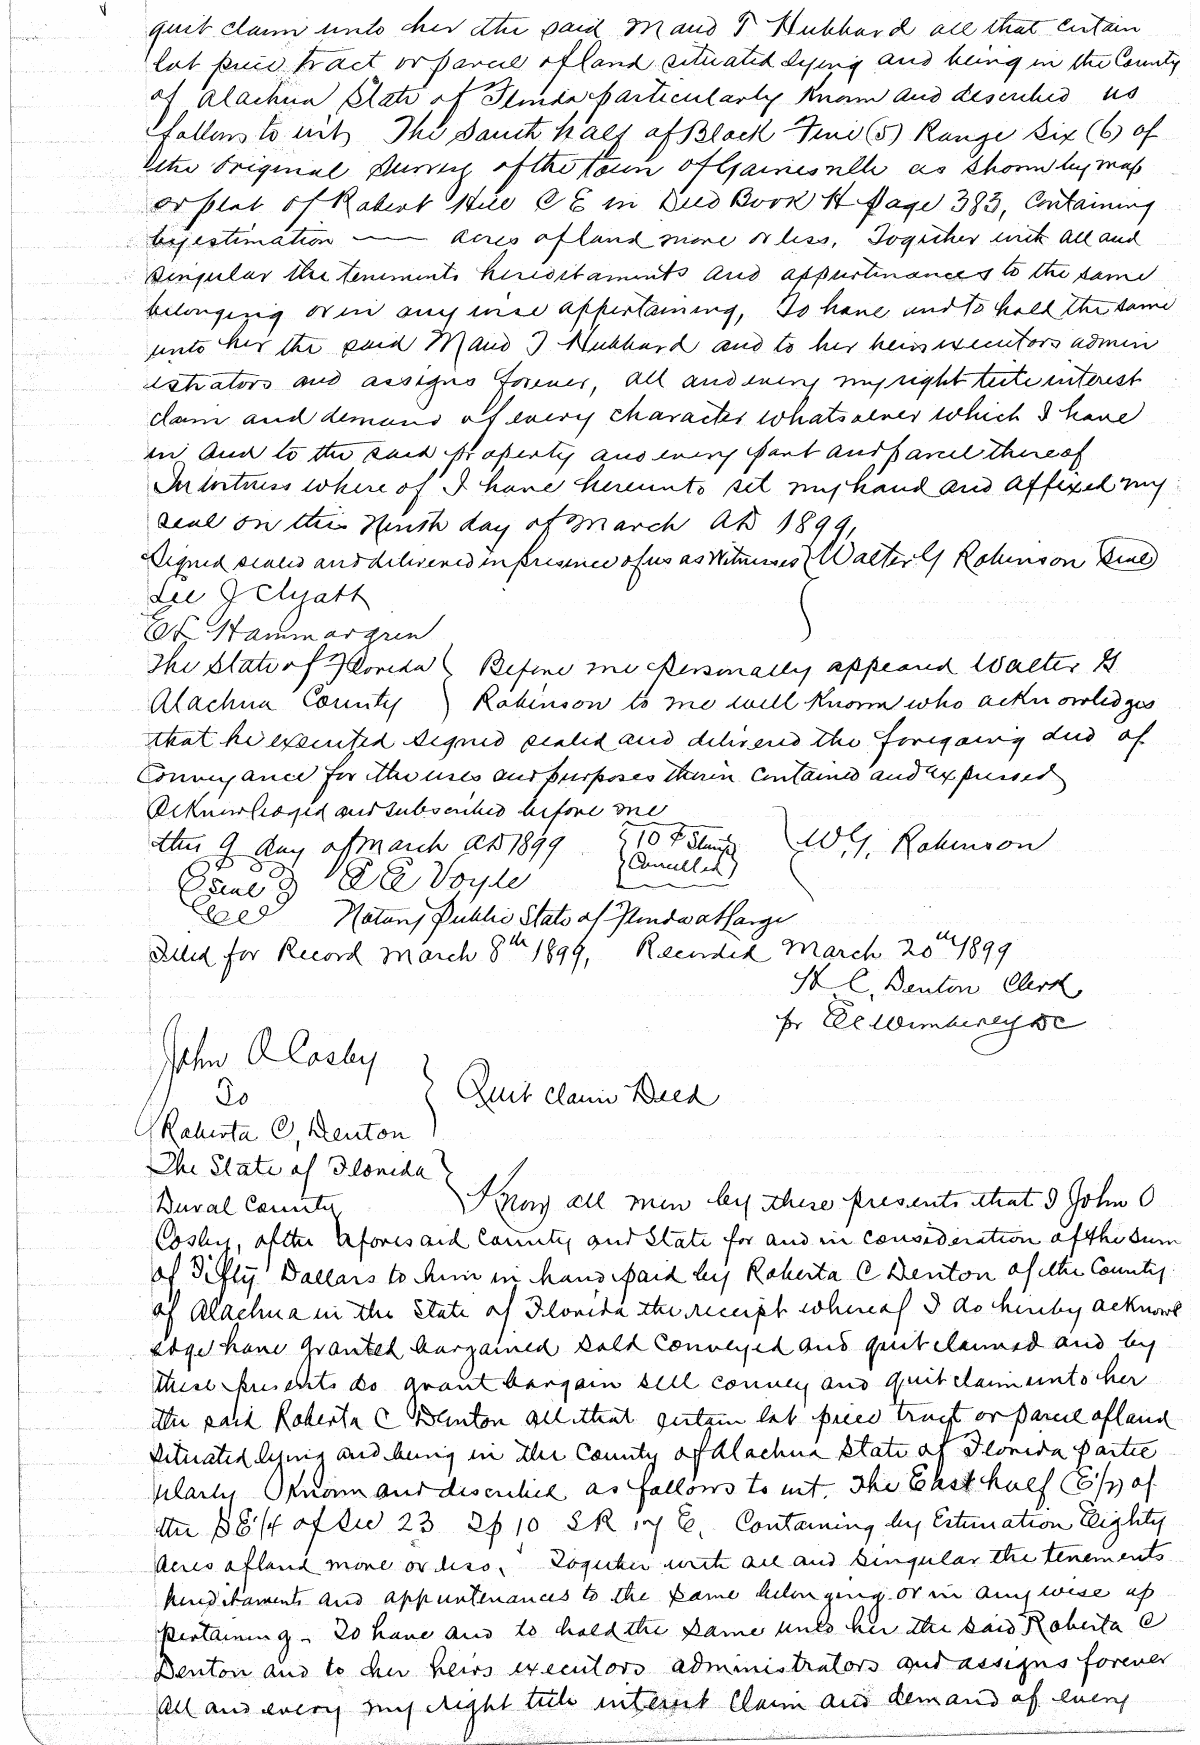 quit claim unto her the said Maud T Hubbard all that certain
lot piece tract or parcel of land situated lying and being in the County
of Alachua State of Florida particularly known and described as
follows to wit, The South half of Block Five (5) Range Six (6) of
the Original Survey of the town of Gainesville as shown by map
or plat of Robert Hill C E in Deed Book H Page 383, Containing
by estimation —— acres of land more or less. Together with all and
singular the tenements hereditaments and appurtinances to the same
belonging or in any wise appertaining, To have and to hold the same
unto her the said Maud T Hubbard and to her heirs executors admin
istrators and assigns forever, all and every my right title interest
claim and demand of every character whatsoever which I have
in and to the said property and every part and parcel thereof
In witness where of I have hereunto set my hand and affixed my
seal on this Ninth day of March AD 1899,
Signed sealed and delivered in presence of us as Witnesses Walter G Robinson Seal
Lee J Clyatt
E L Hammargren
The State of Florida Before me Personally appeared Walter G
Alachua County Robinson to me well known who acknowledges
that he executed signed sealed and delivered the foregoing deed of
Conveyance for the uses and purposes therin contained and expressed
Acknowledged and subscribed before me
this 9 day of March AD 1899 10 ¢ Stamp W, G, Robinson
Cancelled
Seal E E Voyle
Notary Public State of Florida at Large
Filed for Record March 8th 1899, Recorded March 20th 1899
H. C, Denton Clerk
pr E C Wimberley DC
John O Cosby
To
Quit claim Deed
Roberta C, Denton
The State of Florida
Duval County Know all men by these presents that I John O
Cosby, of the aforesaid County and State for and in consideration of the sum
of Fifty Dollars to him in hand paid by Roberta C Denton of the County
of Alachua in the State of Florida the receipt whereof I do hereby acknowl
edge have granted bargained sold conveyed and quit claimed and by
these presents do grant bargain sell convey and quit claim unto her
the said Roberta C Denton all that certain lot piece tract or parcel of land
situated lying and being in the County of Alachua State of Florida partic
ularly known and described as follows to wit. The East half (E/2) of
the SE/4 of Sec 23 Tp 10 S R 17 E. Containing by Estimation Eighty
acres of land more or less. Together with all and singular the tenements
hereditaments and appurtenances to the same belonging or in any wise ap
pertaining. To have and to hold the same unto her the said Roberta C
Denton and to her heirs executors administrators and assigns forever
all and every my right title interest claim and demand of every